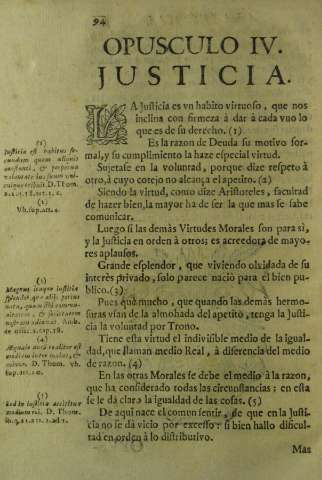 94
OPUSCULO IV.
JUSTICIA.
LA Justicia es vn habito virtuoso, que nos
inclina con firmeza à dar à cada vuo lo
que es de su derecho. (1)
Es la razon de Deuda su motivo for-
mal, y su cumplimiento la haze especial virtud.
Sujetase en la voluntad, porque dize respeto à
otro, à cuyo cotejo no alcança el apetito. (2)
Siendo la virtud, como dize Aristoteles, facultad
de hazer bien, la mayor ha de ser la que mas se sabe
comunicar.
Luego si las demàs Virtudes Morales son para sì,
y la Justicia en orden à otros; es acreedora de mayo-
res aplausos.
Grande esplendor, que viviendo olvidada de su
interès privado, solo parece naciò para el bien pu-
blico. (3)
Pues què mucho, que quando las demàs hermo-
suras vsan de la almohada del apetito, tenga la Justi-
cia la voluntad por Trono.
Tiene esta virtud el indivisible medio de la igual-
dad, que llaman medio Real, à diferencia del medio
de razon. (4)
En las otras Morales se debe el medio à la razon,
que ha considerado todas las circunstancias; en esta
se le dà claro la igualdad de las cosas. (5)
De aqui nace el comun sentir, de que en la Justi-
cia no se dà vicio por excesso: si bien hallo dificul-
tad en orden à lo distributivo.
Mas
(1)
Justicia est habitus se-
cundum quem aliquis
constanti, &
perpetua
voluntate ius suum vni-
cuique tribuit. D. Thom.
(2)
Vb. sup. art. 4.
(3)
(4)
medium inter
D. Thom. vb.
sup.
(5)
Sed in iustitia
medium rei. D. Thom.